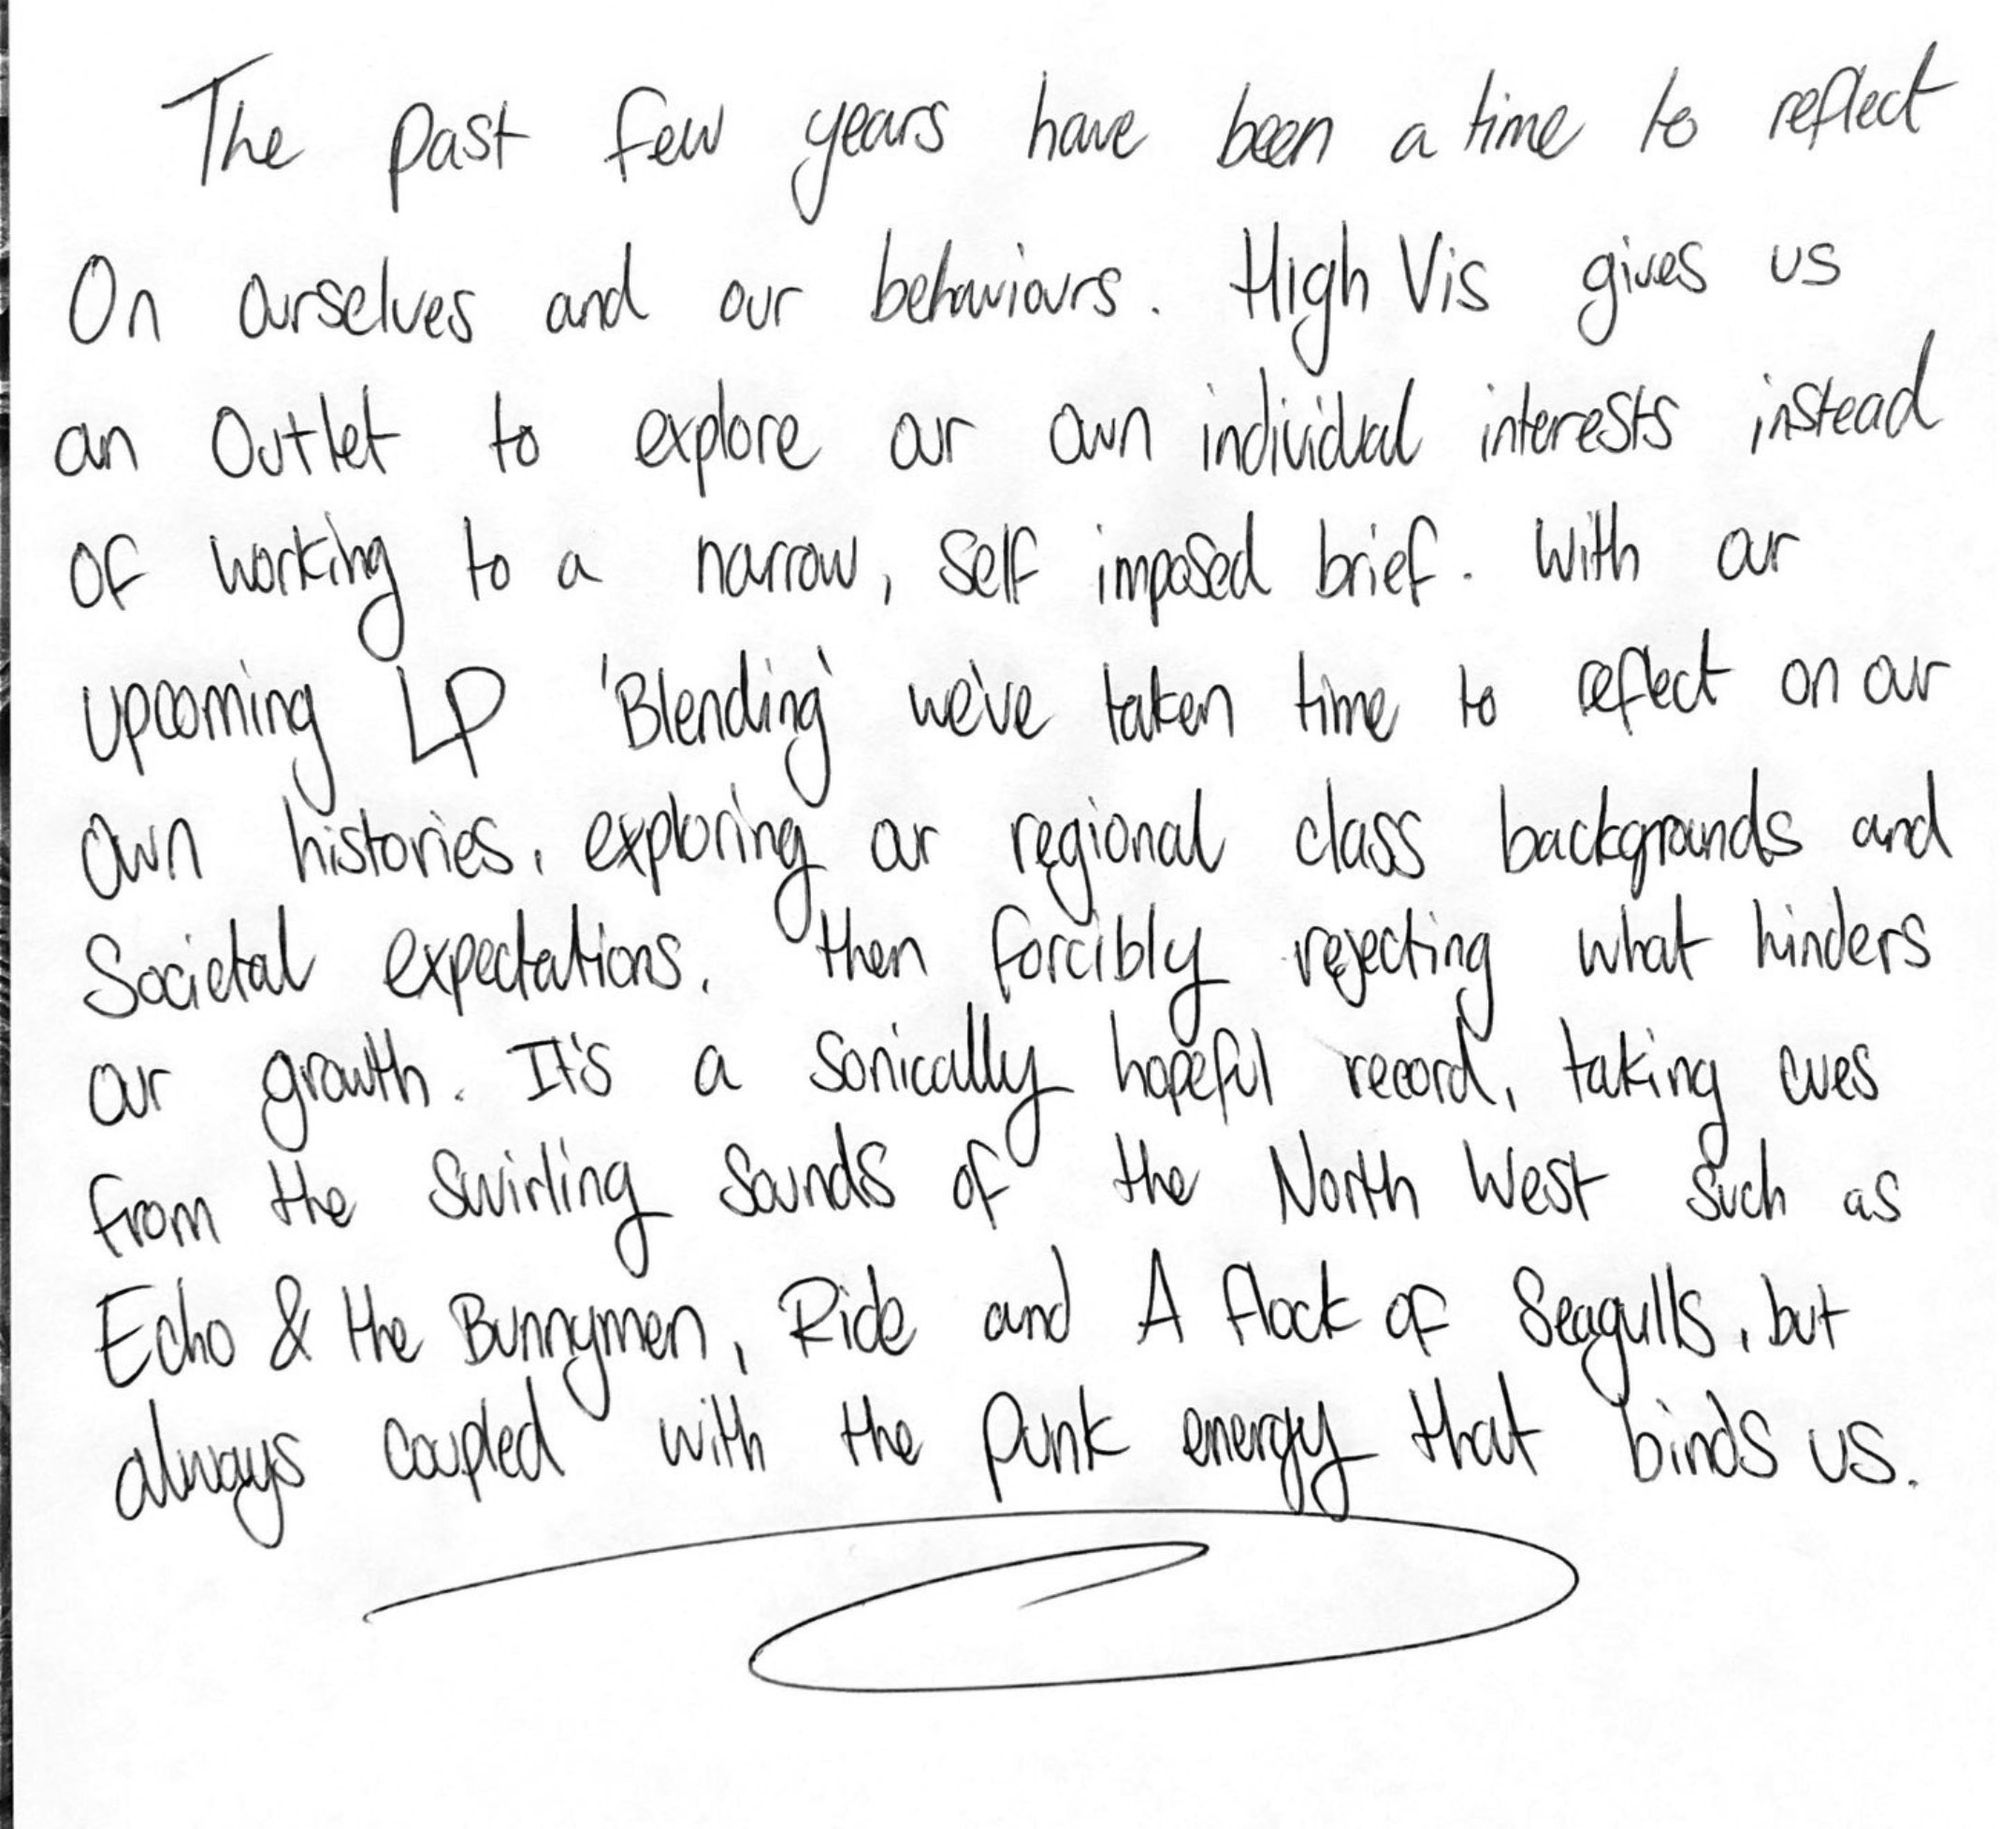 The past few years have been a time to reflect
On ourselves and our behaviours. High Vis gives us
an Outlet to explore our own individual interests instead
of working to a narrow, self imposed brief. With our
upcoming LP 'Blending' we've taken time to reflect on our
own histories, exploring our regional class backgrounds and
Societal expectations, then forcibly rejecting what hinders
our growth. It's a sonically hopeful record, taking cues
from the swirling sounds of the North West such as
Echo & the Bunnymen, Ride and A flock of Seagulls, but
always coupled with the punk energy that binds us.